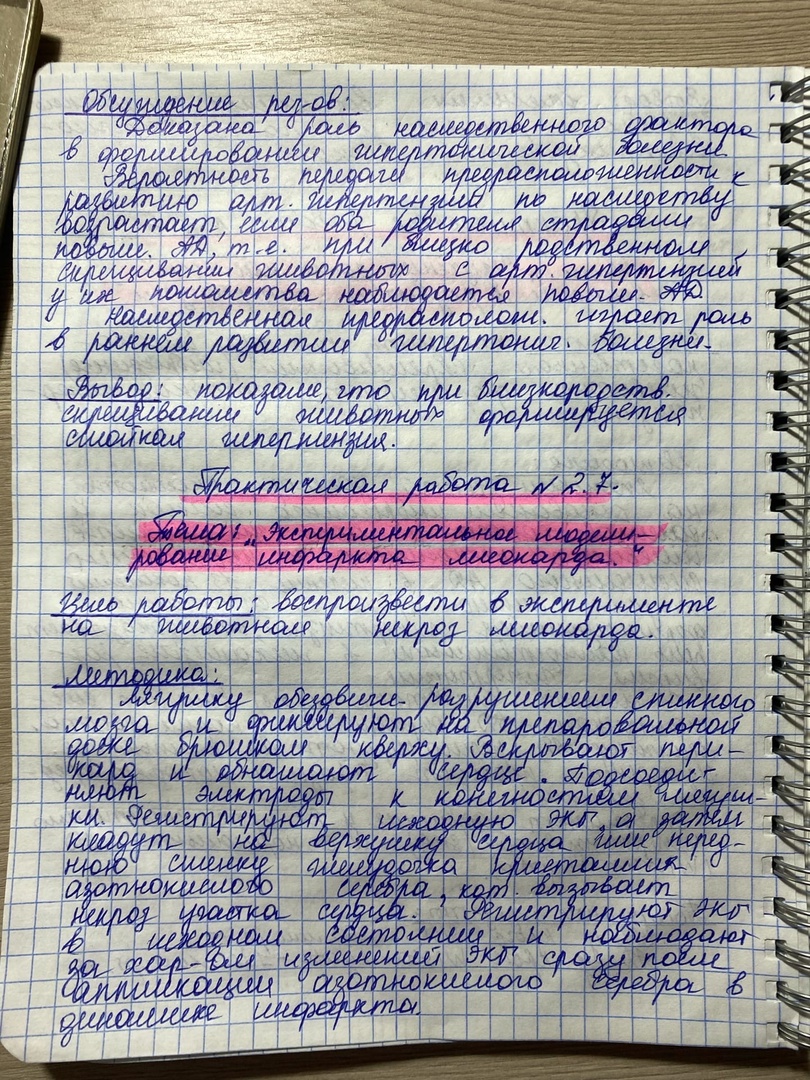 Обсуждение рез-ов:
Доказана роль наследственного фактора
в формировании гипертонической болезни
Вероятность передачи предрасположенности к
развитию арт. гипертензии по наследству
возрастает, если оба родителя страдали
повыш. АД, т.е. при близко родственном
скрещивании животных с арт. гипертензией
у их потомства наблюдается повыш. АД.
Наследственная предрасполож. играет роль
в раннем развитии гипертонич. болезни.
Вывод: показали, что при близкородств.
скрещивании животных формируется
стойкая гипертензия.
Практическая работа № 2.7.
Тема: „Экспериментальное модели-
рование инфаркта миокарда."
Цель работы: воспроизвести в эксперименте
на животном некроз миокарда.
Методика:
Лягушку обездвиж. разрушением спинного
мозга и фиксируют на препаровальной
доске брюшком кверху. Вскрывают пери-
кард и обнажают сердце. Подсоеди-
няют электроды к конечностям лягуш-
ки. Регистрируют исходную ЭКГ, а затем
кладут на верхушку сердца или перед-
нюю стенку желудочка кристаллик
азотнокислого серебра, кот. вызывает
некроз участка сердца. Регистрируют ЭКГ
в исходном состоянии и наблюдают
за хар-ом изменений ЭКГ сразу после
аппликации азотнокислого серебра в
динамике инфаркта.